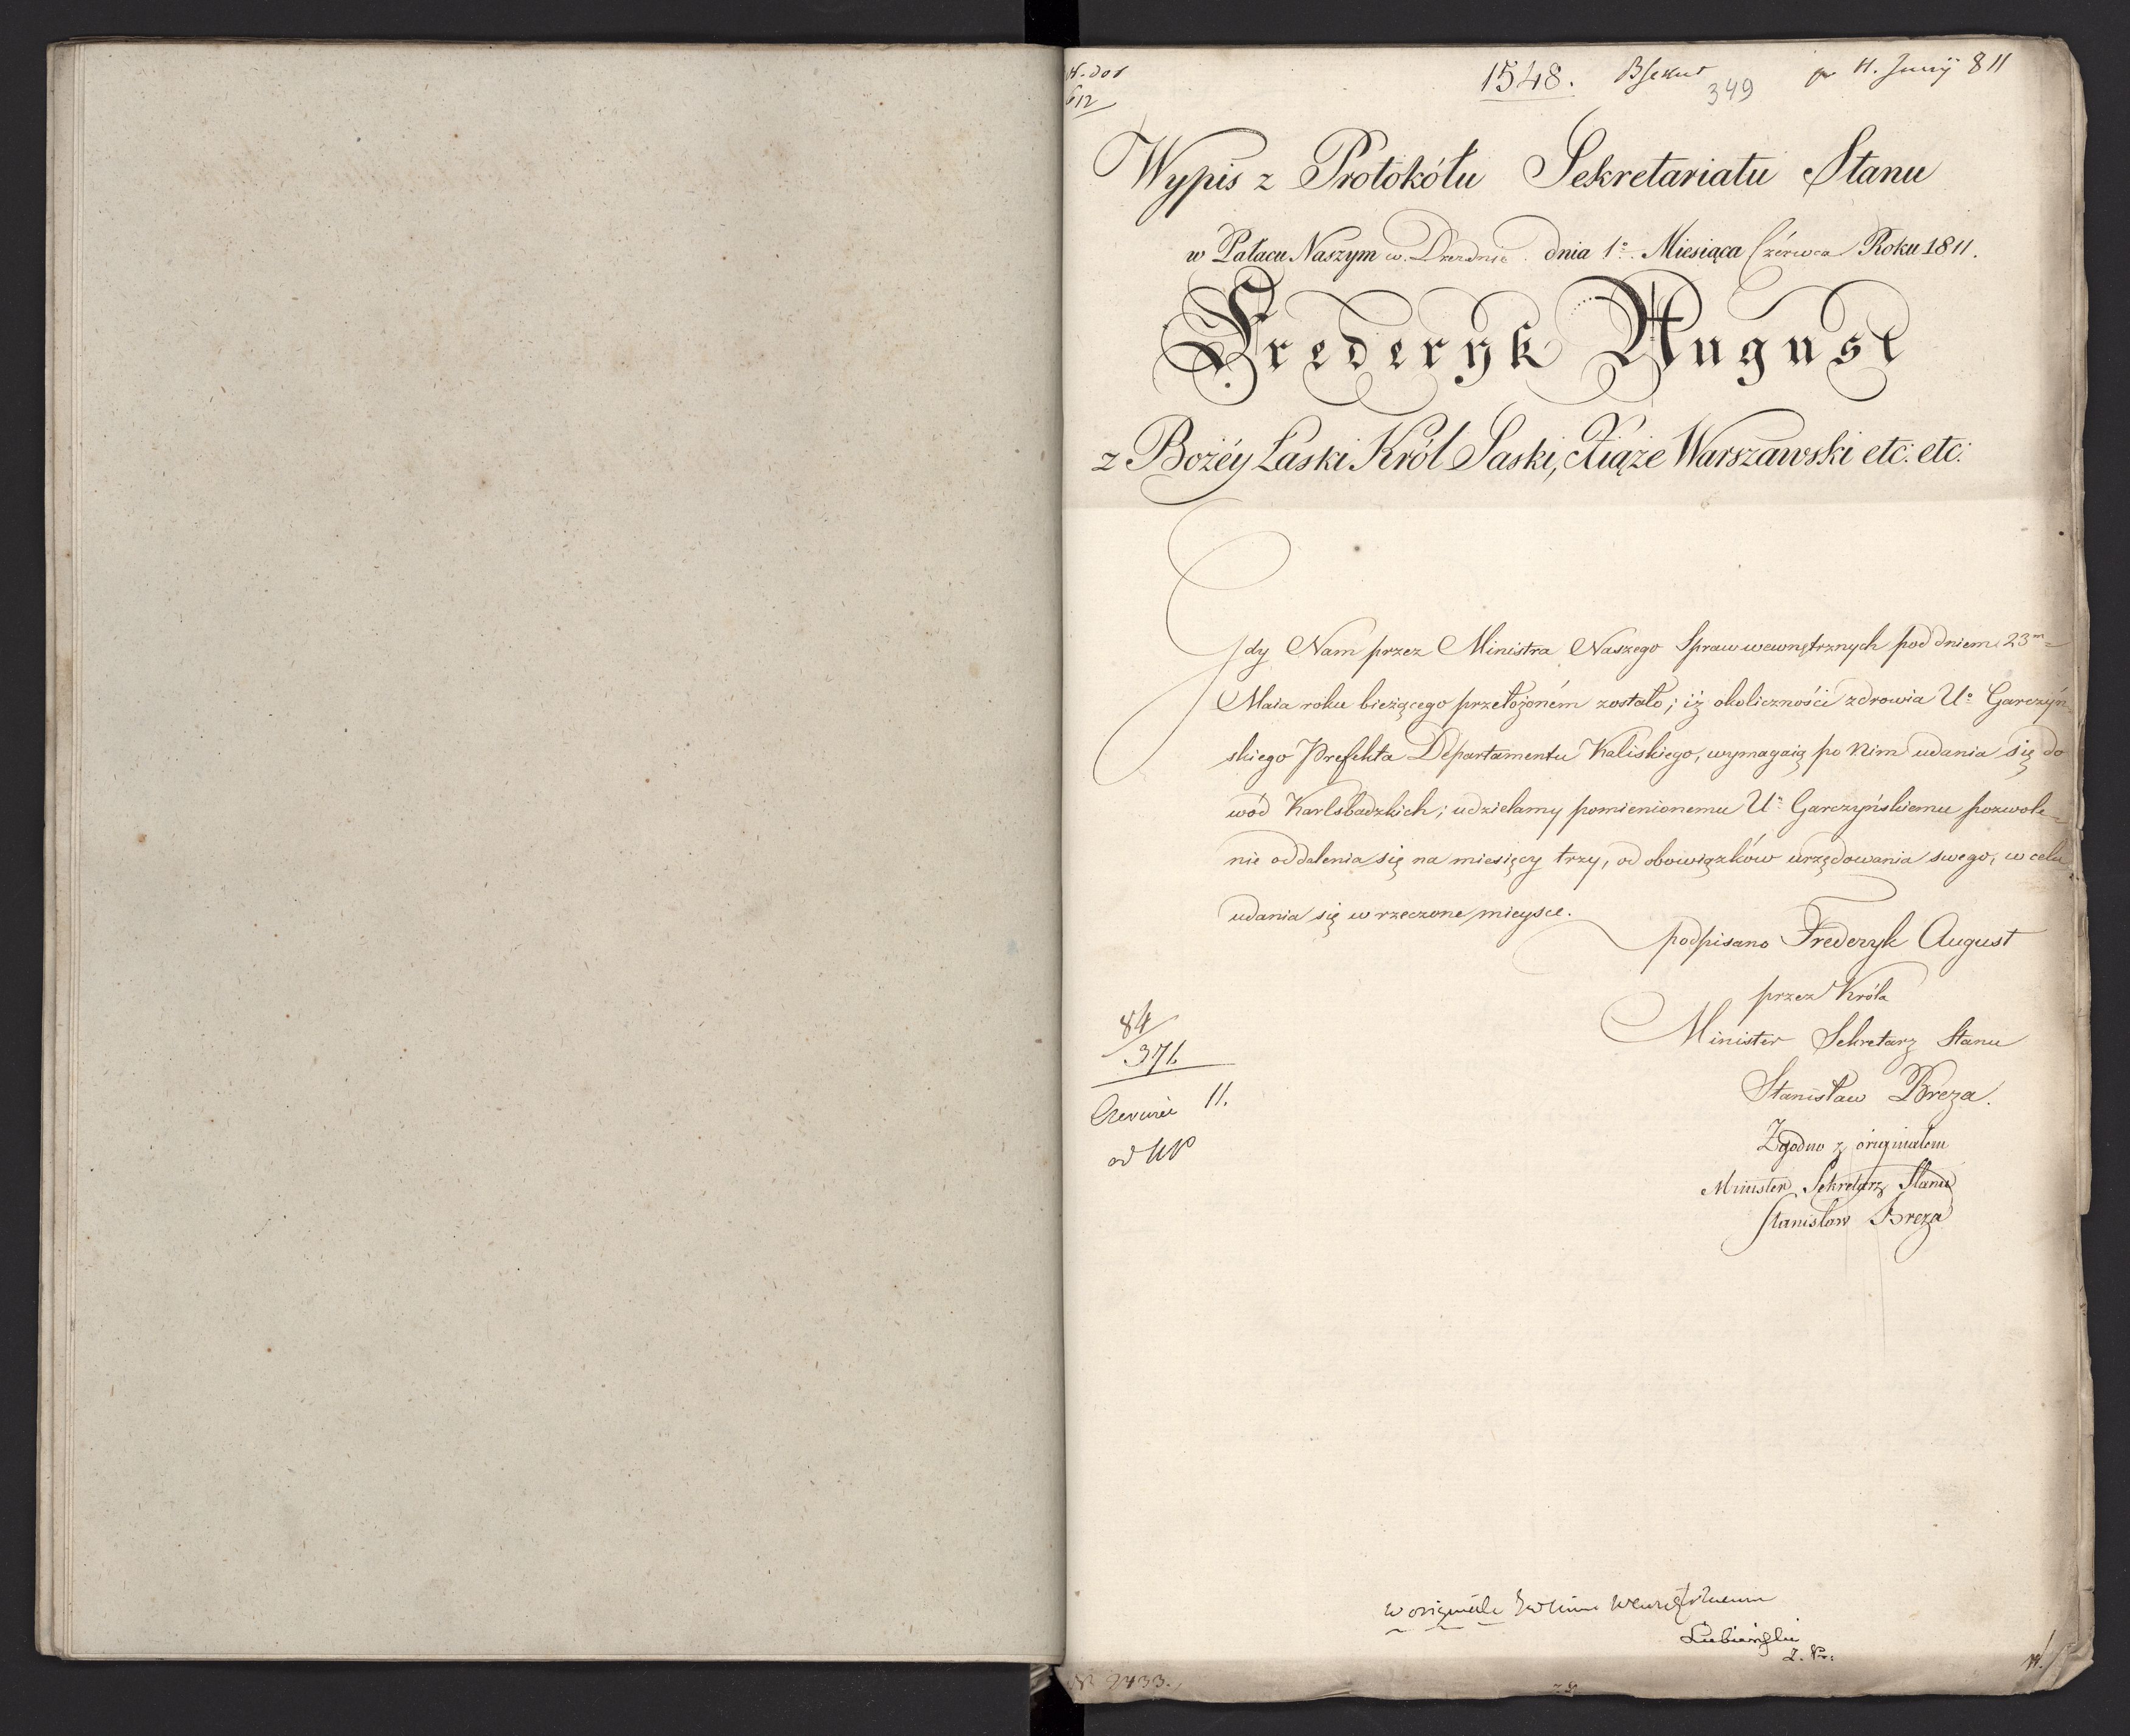 1548. 349 11. Junij 811
612
Wypis z Protokółu Sekretariatu Stanu
w Pałacu Naszym w. Dreznie. dnia 1º. Miesiąca Czérwca Roku 1811.
Frederyk August
z Bożéy Łaski Król Saski, Xiąże Warszawski etc: etc:
Gdy Nam przez Ministra Naszego Spraw wewnętrznych pod dniem 23m=
Maia roku bieżącego przełożoném zostało; iż okoliczności zdrowia Uº Garczyń=
skiego Prefekta Departamentu Kaliskiego, wymagaią po Nim udania się do
wód Karlsbadzkich; udzielamy pomienionemu Uº Garczyńskiemu pozwole=
nie oddalenia się na miesięcy trzy, od obowiązków urzędowania swego, w celu
udania się w rzeczone mieysce.
podpisano Frederyk August
przez Króla
Minister Sekretarz Stanu
Stanisław Breza.
Zgodno z originałem
Minister Sekretarz Stanu
Stanisław Breza
84
376
Czerwca 11.
w originale
Lubieński
N 2433.